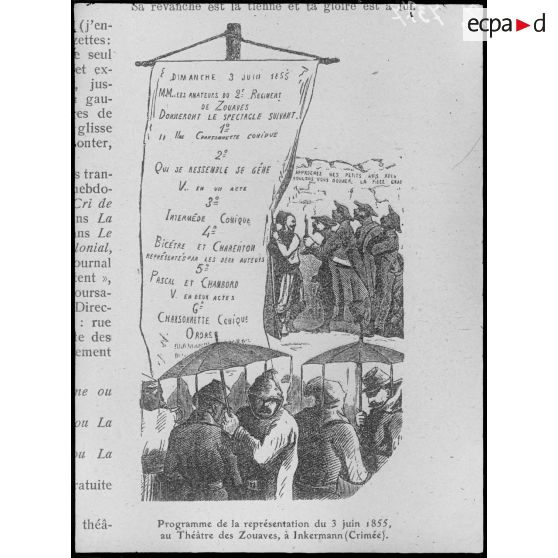 Sa revanche est la tienne et ta gloire est à lui.
ecpad
(j'en-
zettes:
e seul
et ex-
, jus-
gau-
res de
glisse
onter,
s tran-
hebdo-
Cri de
ns La
ans Le
lonial,
ournal
tent »,
oursa-
Direc-
: rue
te des
ement
ne ou
ou La
ou La
ratuite
théâ-
DIMANCHE 3 JUIN 1855
MM. LES AMATEURS DU 2e REGIMENT
DE ZOUAVES
DONNERONT LE SPECTACLE SUIVANT
1o
UNE CHANSONNETTE COMIQUE
2o
QUI SE RESSEMBLE SE GÊNE
V.. EN UN ACTE
3o
INTERMÈDE COMIQUE
4o
BICÊTRE ET CHARENTON
REPRÉSENTÉ PAR LES DEUX AUTEURS
5o
PASCAL ET CHAMBORD
V. EN DEUX ACTES
6o
CHANSONNETTE COMIQUE
ORDRE
APPROCHEZ MES PETITS AMIS
VOULONS VOUS DONNER LA
Programme de la représentation du 3 juin 1855,
au Théâtre des Zouaves, à Inkermann (Crimée).